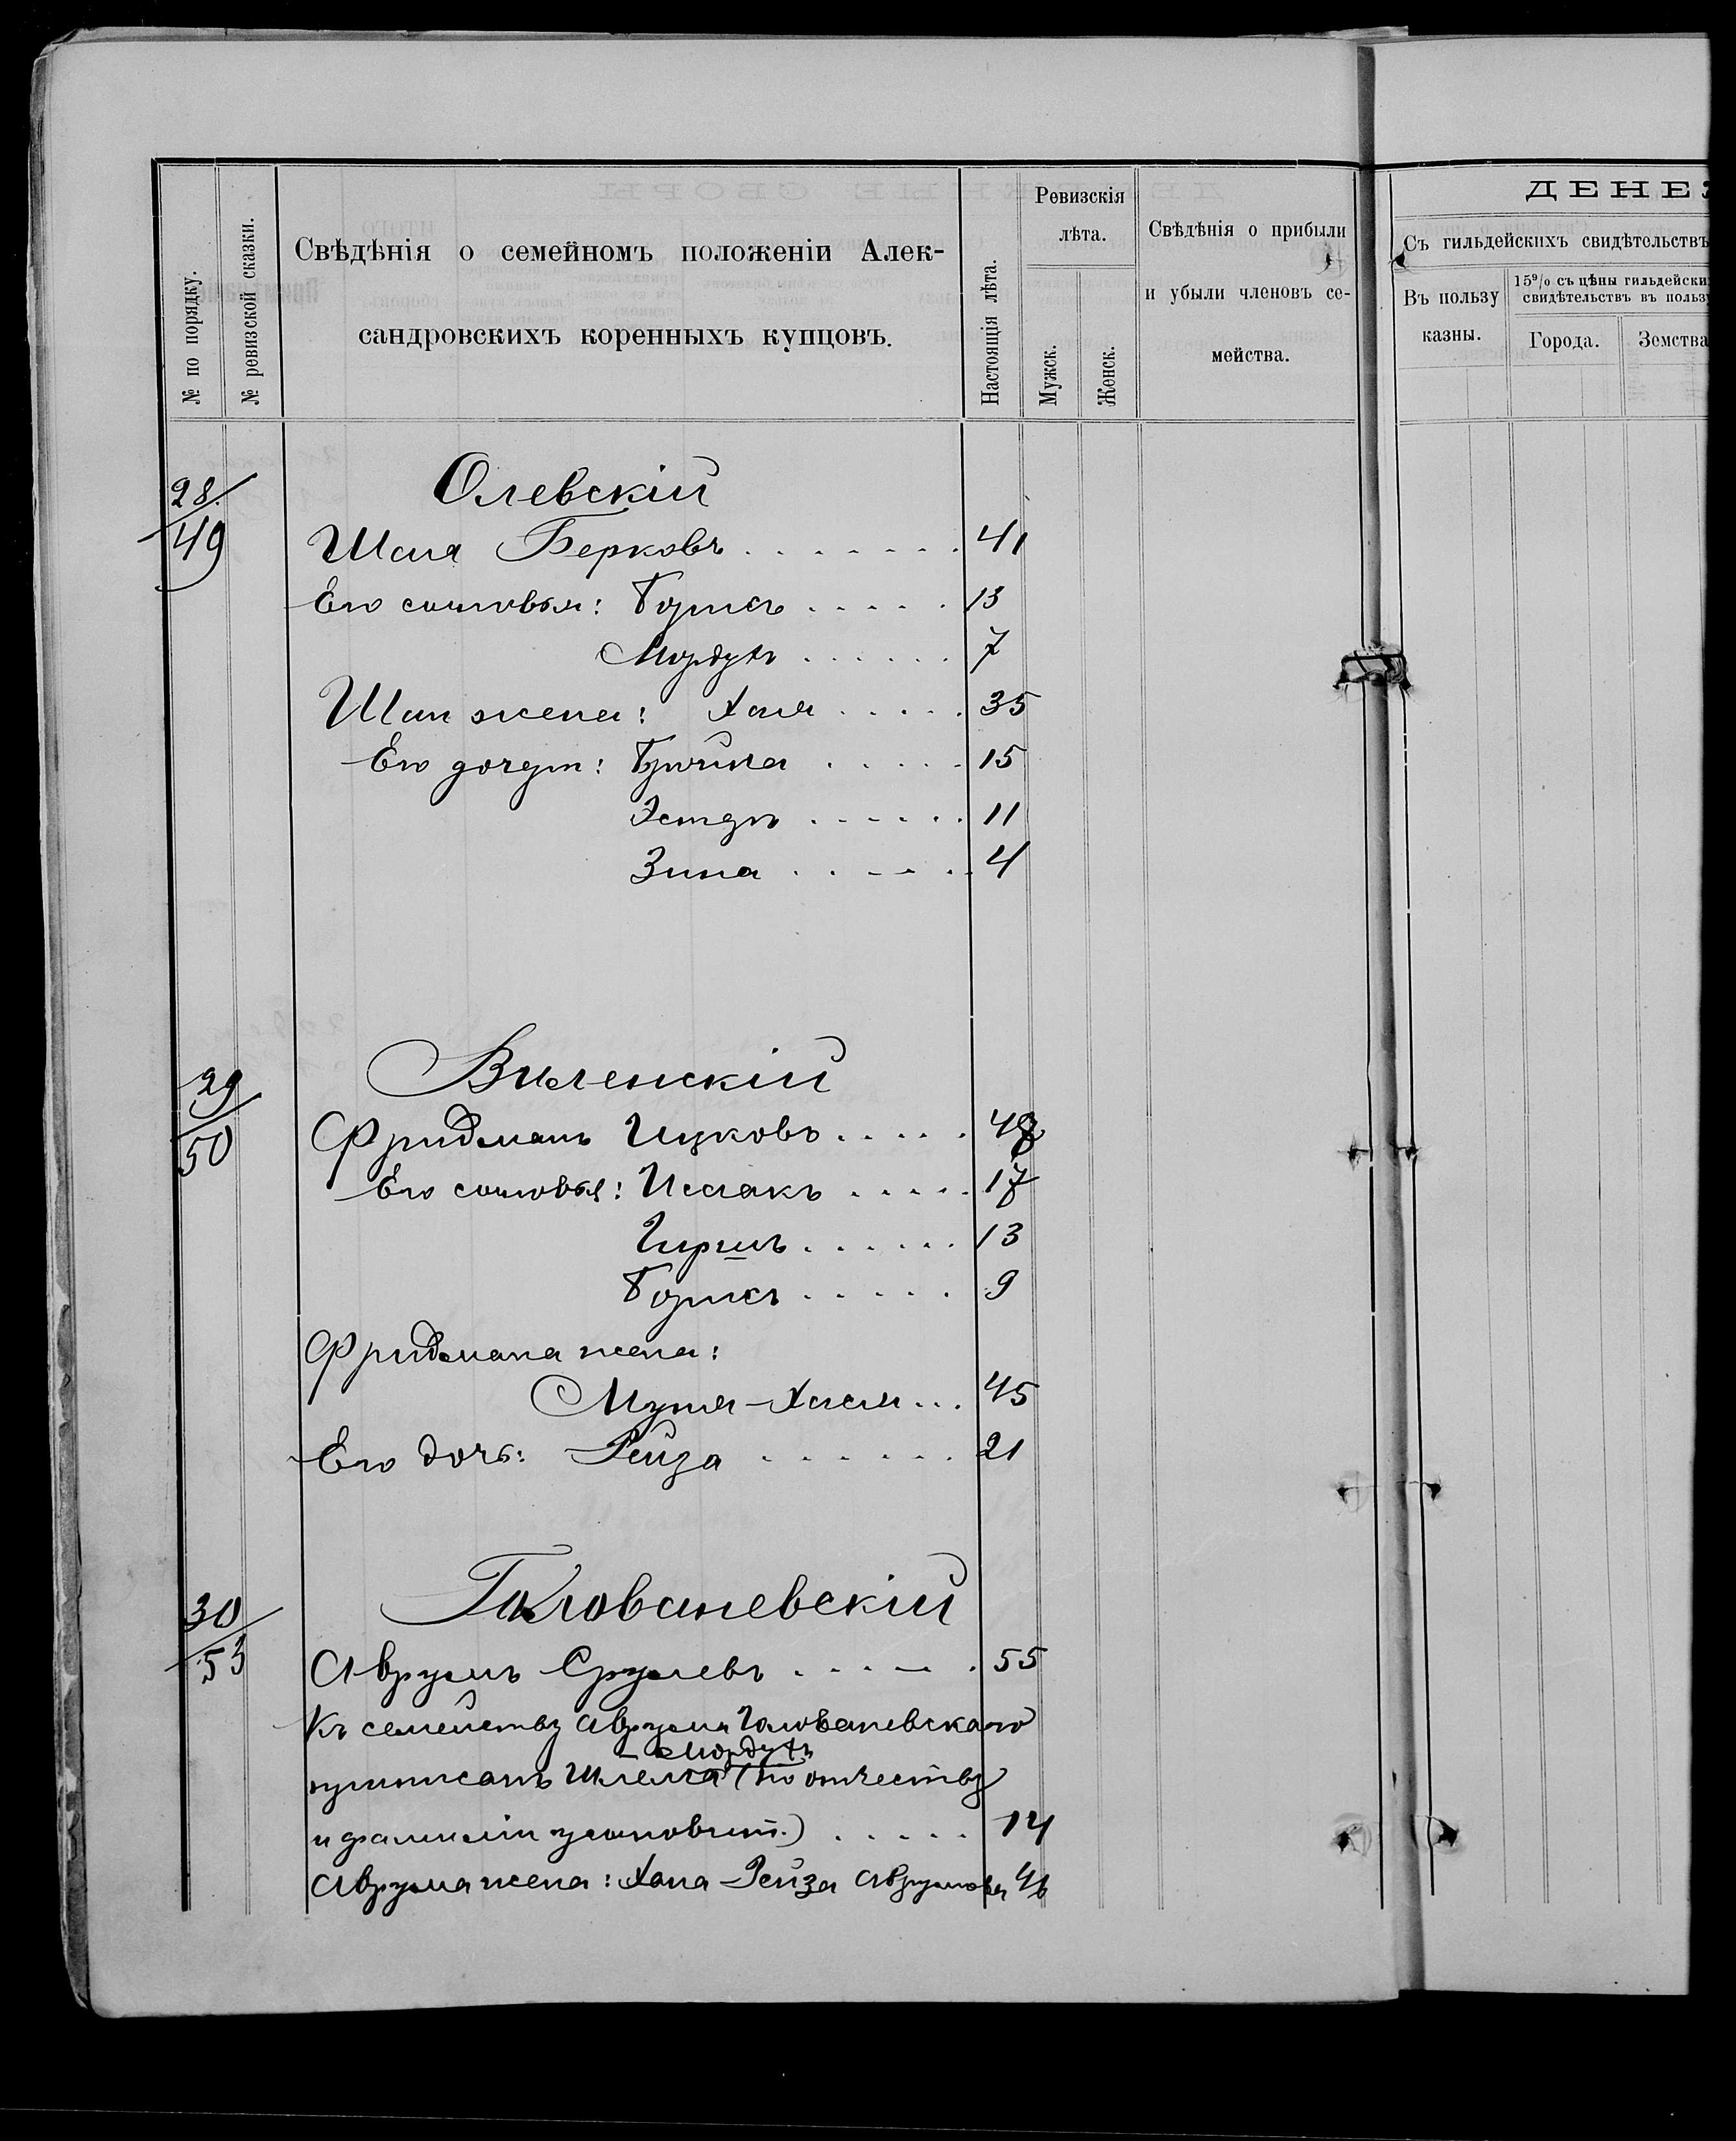 № по порядку.
№ ревизской сказки.
Свѣдѣнія о семейномъ положеніи Алек-
сандровскихъ коренныхъ купцовъ.
Настоящія лѣта.
Ревизскія
лѣта.
Мужск.
Женск.
Свѣдѣнія о прибыли
и убыли членовъ се-
мейства.
ДЕНЕ
Съ гильдейскихъ свидѣтельствъ
Въ пользу
казны.
15% съ цѣны гильдейски
свидѣтельствъ въ польз
Города.
Земства
28
49
Олевскій
Шая Берковъ 41
Его сыновья: Борисъ 13
Мордухъ 7
Шаи жена: Хая 35
Его дочери: 15
Эстеръ 11
Зина 4
29
50
Виленскій
Фридманъ Ицковъ 48
Его сыновья: Исаакъ 17
Гиршъ 13
Борисъ 9
Фридмана жена:
Хася 45
Его дочь: Рейза 21
30
53
Голованевскій
Аврумъ Срулевъ 55
Къ семейству Аврума Голованевскаго
Мордухъ
приписанъ Шлема (по отчеству
и фамиліи) 14
Аврума жена: Хана-Рейза Аврумова 46